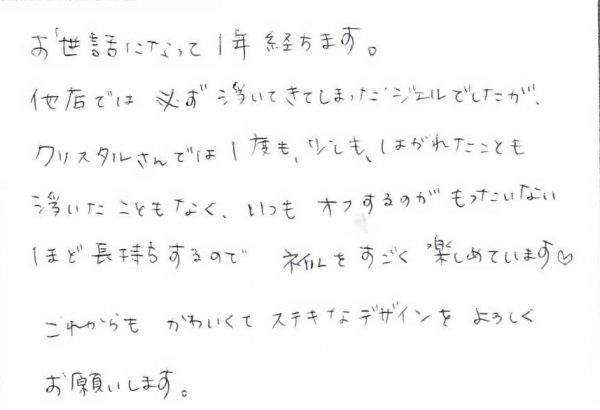 お世話になって1年経ちます。
他店では必ず浮いてきてしまったジェルでしたが、
クリスタルさんでは1度も、少しも、はがれたことも
浮いたこともなく、いつもオフするのがもったいない
ほど長持ちするので ネイルをすごく楽しめています♡
これからも かわいくてステキなデザインを よろしく
お願いします。